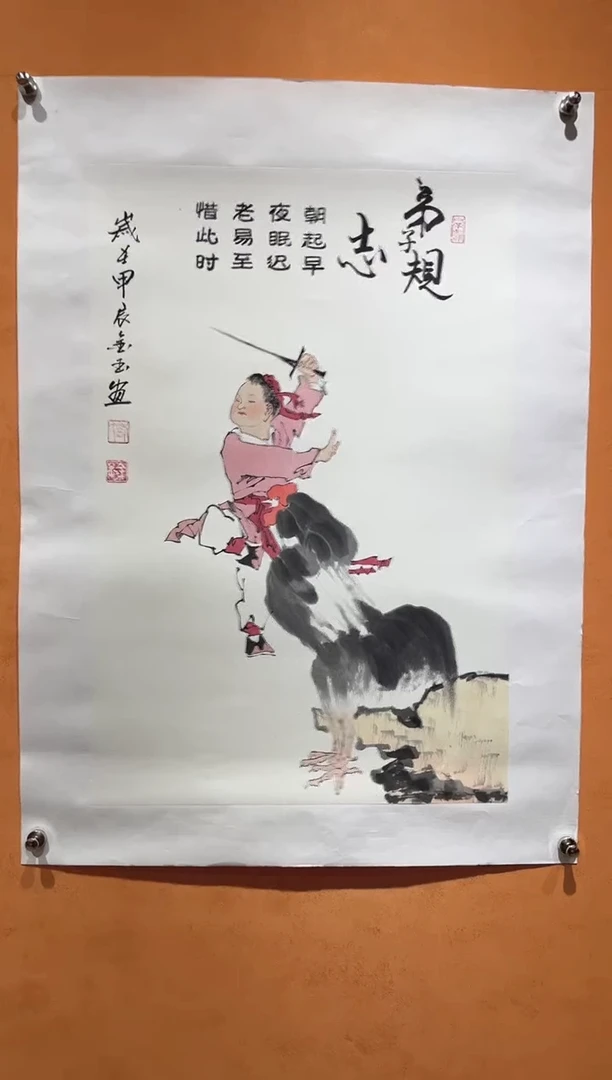 弟子规
志
朝起早
夜眠迟
老易至
惜此时
岁在甲辰金玉画